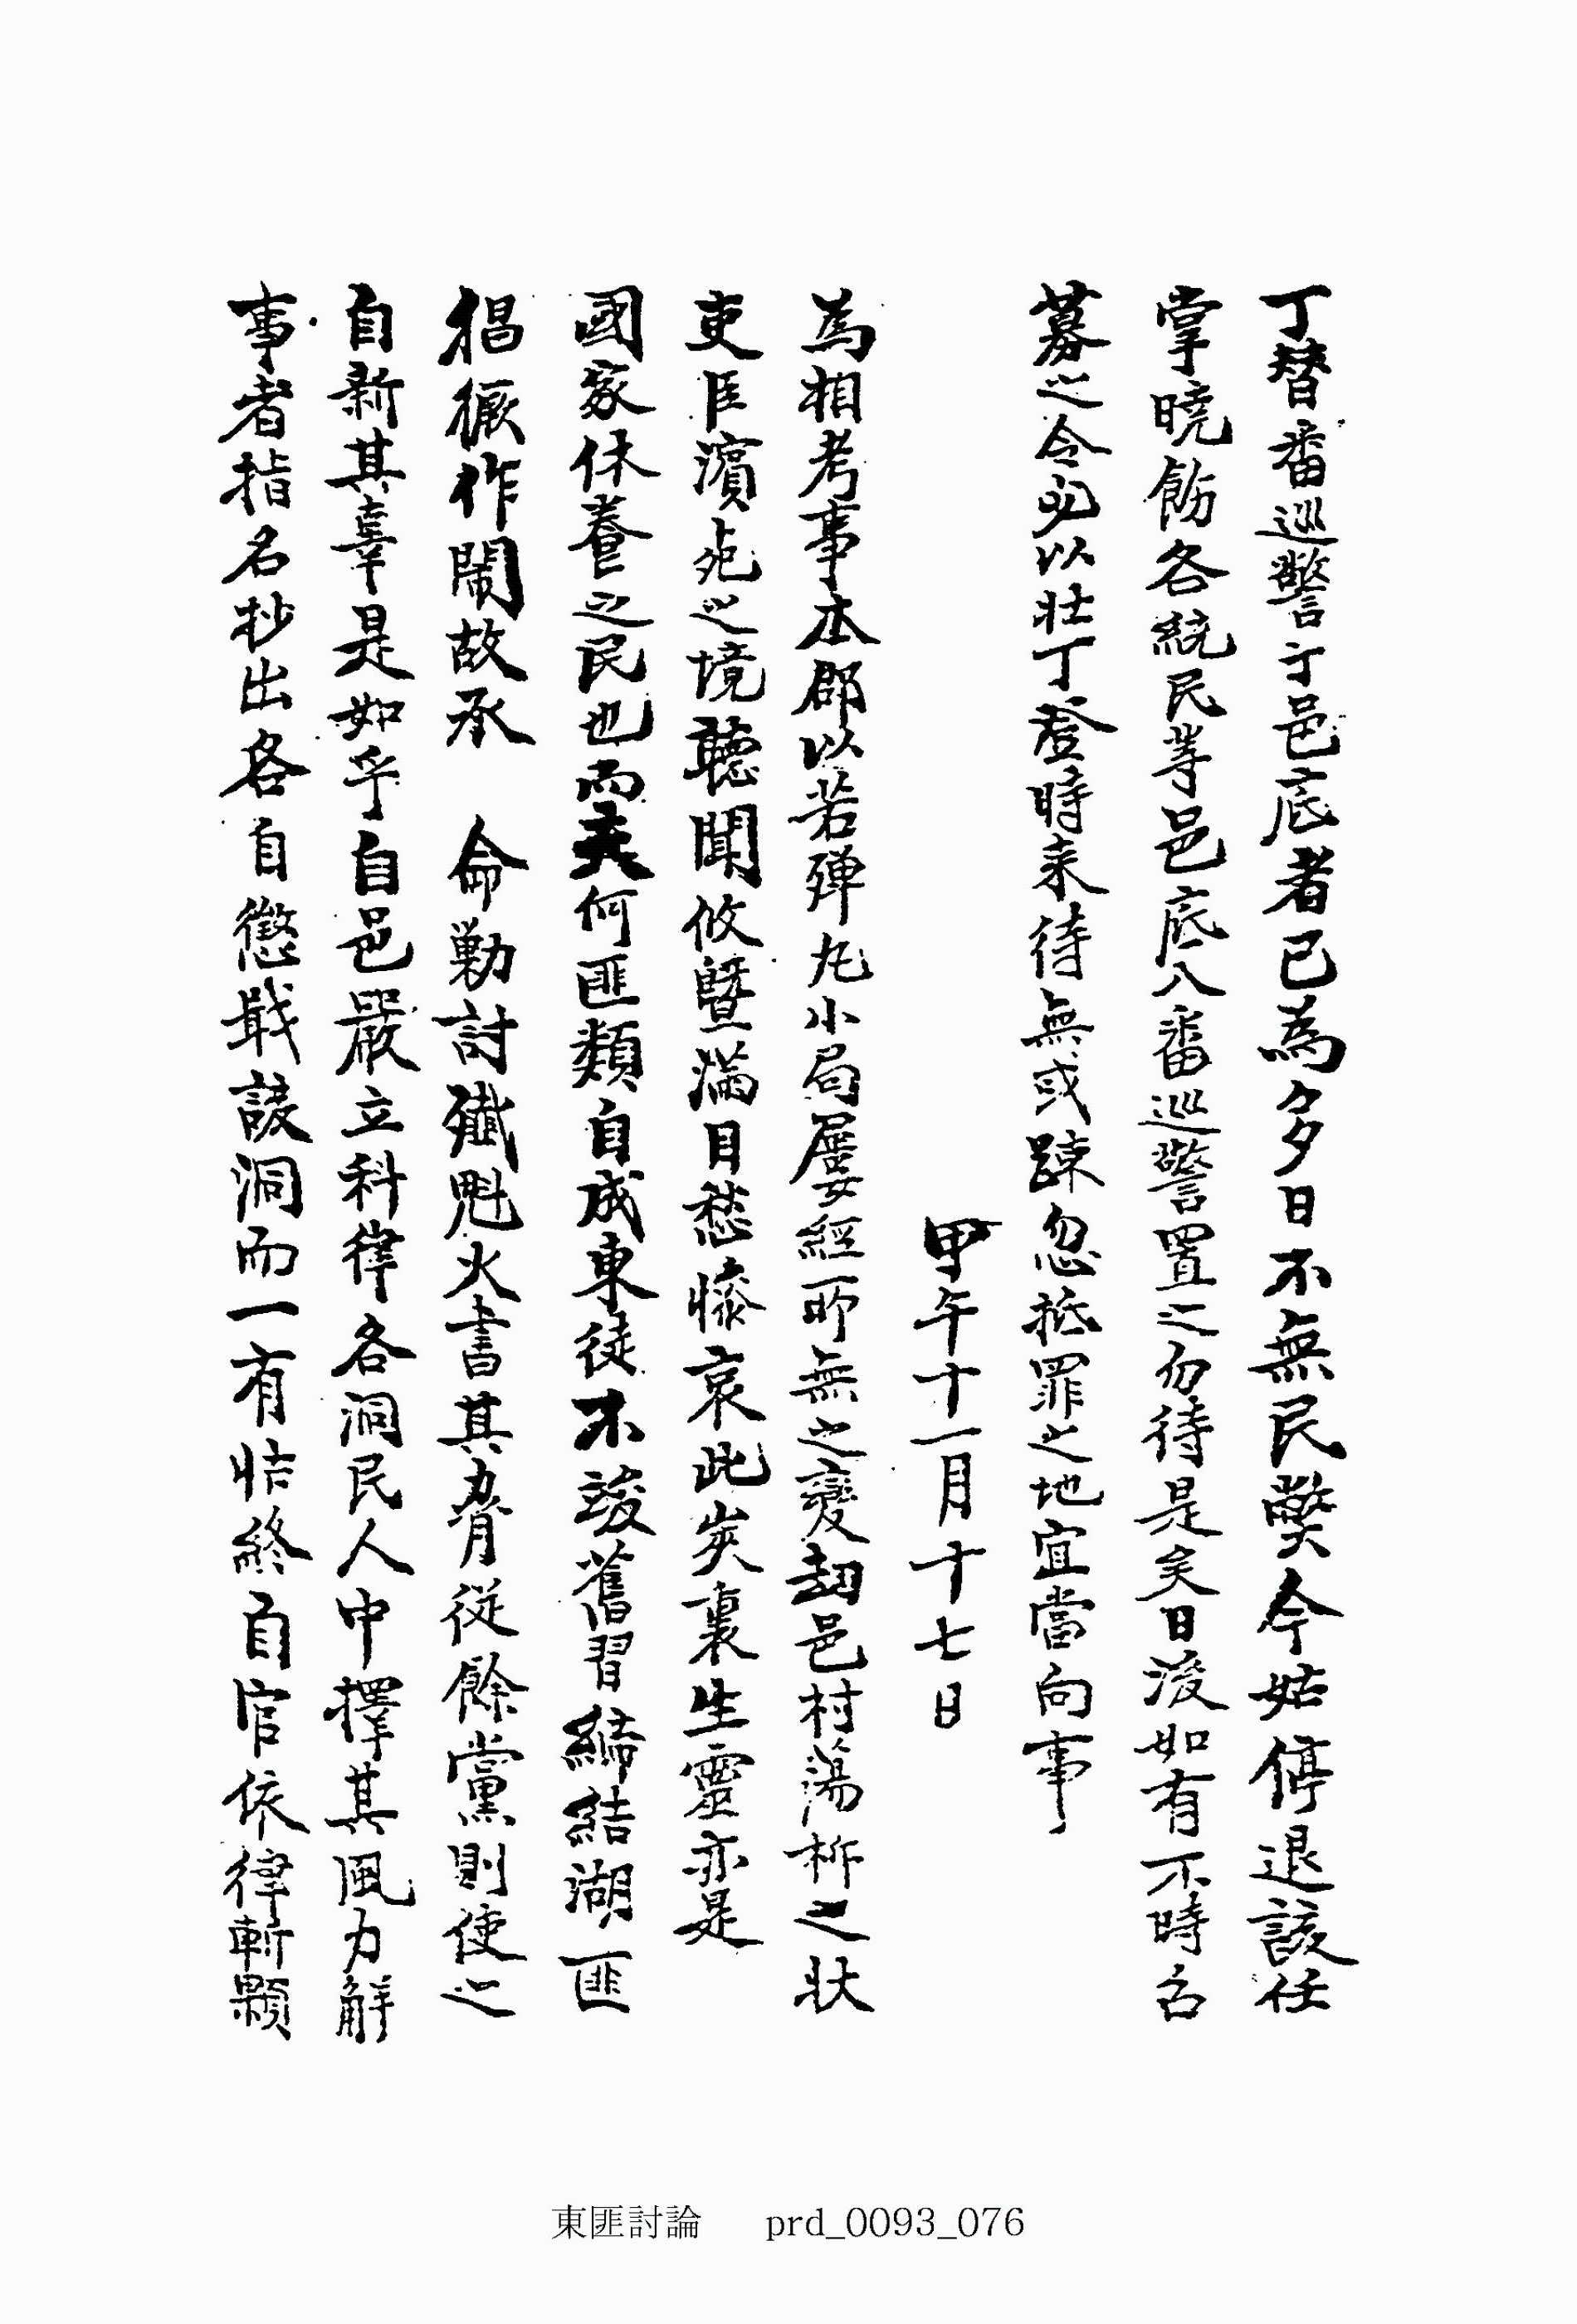 丁替番巡警于邑底者已為多日不無民弊今姑停退該任
掌曉飭各統民等邑底八番巡警置之勿待是矣日後如有不時召
募之令必以壯丁登時来待無或踈忽抵罪之地宜當向事
甲午十一月十七日
為相考事本郡以若殫丸小局屢經所無之變刼邑村蕩柝之狀
吏民濱死之境聽聞攸曁滿目愁慘哀此炭裏生靈亦是
國家休養之民也而奚何匪類自成東徒不竣舊習締結湖匪
猖獗作鬧故承 命勦討殲魁火書其脅從餘黨則使之
自新其幸是如乎自邑嚴立科律各洞民人中擇其風力解
事者指名抄出各自懲戢該洞而一有怙終自官依律斬顆
東匪討論 prd_0093_076